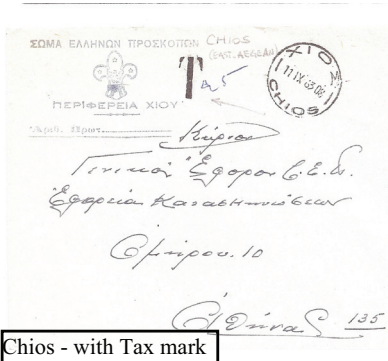 ΣΩΜΑ ΕΛΛΗΝΩΝ ΠΡΟΣΚΟΠΩΝ CHIOS
(EAST. AEGEAN)
T 25
ΧΙΟΣ
11 IX 63 08
CHIOS
ΠΕΡΙΦΕΡΕΙΑ ΧΙΟΥ
Ἀριθ. Πρωτ.
Κύριον
Γενικὸν Ἔφορον Σ.Ε.Π.
Ἐφορεία Κατασκηνώσεων
Ὁμήρου 10
Ἀθήνας 135
Chios - with Tax mark